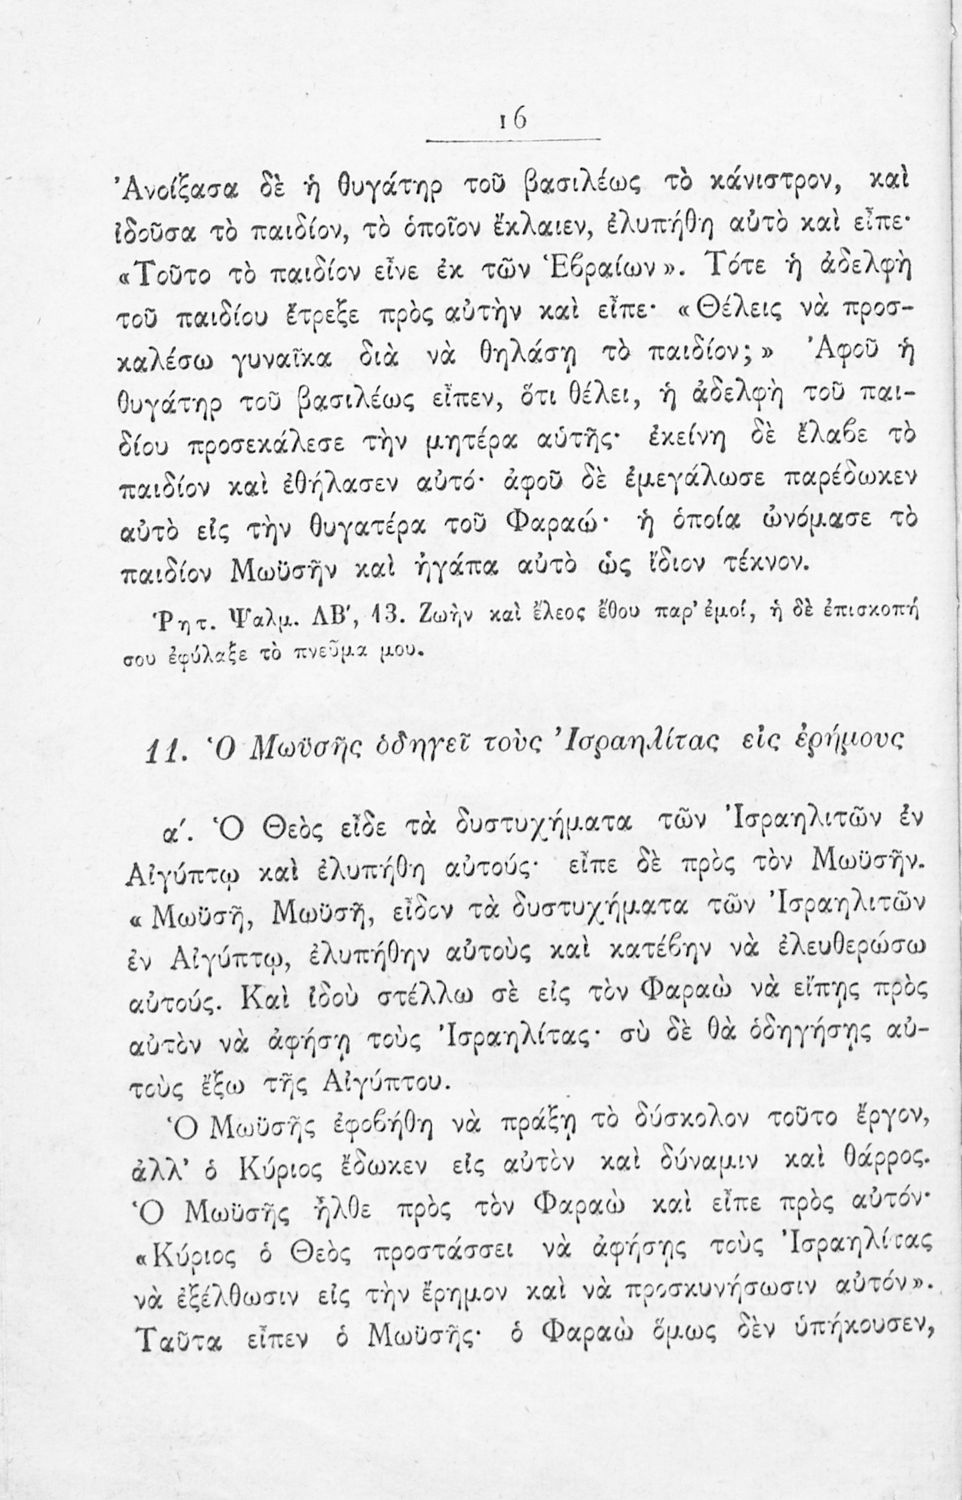 16
Ἀνοίξασα δὲ ἡ θυγάτηρ τοῦ βασιλέως τὸ κάνιστρον, καὶ
ἰδοῦσα τὸ παιδίον, τὸ ὁποῖον ἔκλαιεν, ἐλυπήθη αὐτὸ καὶ εἶπε·
«Τοῦτο τὸ παιδίον εἶνε ἐκ τῶν Ἑβραίων». Τότε ἡ ἀδελφὴ
τοῦ παιδίου ἔτρεξε πρὸς αὐτὴν καὶ εἶπε· «Θέλεις νὰ προσ-
καλέσω γυναῖκα διὰ νὰ θηλάσῃ τὸ παιδίον;» Ἀφοῦ ἡ
θυγάτηρ τοῦ βασιλέως εἶπεν, ὅτι θέλει, ἡ ἀδελφὴ τοῦ παι-
δίου προσεκάλεσε τὴν μητέρα αὑτῆς· ἐκείνη δὲ ἔλαβε τὸ
παιδίον καὶ ἐθήλασεν αὐτό· ἀφοῦ δὲ ἐμεγάλωσε παρέδωκεν
αὐτὸ εἰς τὴν θυγατέρα τοῦ Φαραώ· ἡ ὁποία ὠνόμασε τὸ
παιδίον Μωϋσῆν καὶ ἠγάπα αὐτὸ ὡς ἴδιον τέκνον.
Ῥητ. Ψαλμ. ΛΒ′, 13. Ζωὴν καὶ ἔλεος ἔθου παρ' ἐμοί, ἡ δὲ ἐπισκοπή
σου ἐφύλαξε τὸ πνεῦμα μου.
11. Ὁ Μωϋσῆς ὁδηγεῖ τοὺς Ἰσραηλίτας εἰς ἐρήμους
α′. Ὁ Θεὸς εἶδε τὰ δυστυχήματα τῶν Ἰσραηλιτῶν ἐν
Αἰγύπτῳ καὶ ἐλυπήθη αὐτούς· εἶπε δὲ πρὸς τὸν Μωϋσῆν.
«Μωϋσῆ, Μωϋσῆ, εἶδον τὰ δυστυχήματα τῶν Ἰσραηλιτῶν
ἐν Αἰγύπτῳ, ἐλυπήθην αὐτοὺς καὶ κατέβην νὰ ἐλευθερώσω
αὐτούς. Καὶ ἰδοὺ στέλλω σὲ εἰς τὸν Φαραὼ νὰ εἴπῃς πρὸς
αὐτὸν νὰ ἀφήσῃ τοὺς Ἰσραηλίτας· σὺ δὲ θὰ ὁδηγήσῃς αὐ-
τοὺς ἔξω τῆς Αἰγύπτου.
Ὁ Μωϋσῆς ἐφοβήθη νὰ πράξῃ τὸ δύσκολον τοῦτο ἔργον,
ἀλλ' ὁ Κύριος ἔδωκεν εἰς αὐτὸν καὶ δύναμιν καὶ θάρρος.
Ὁ Μωϋσῆς ἦλθε πρὸς τὸν Φαραὼ καὶ εἶπε πρὸς αὐτόν·
«Κύριος ὁ Θεὸς προστάσσει νὰ ἀφήσῃς τοὺς Ἰσραηλίτας
νὰ ἐξέλθωσιν εἰς τὴν ἔρημον καὶ νὰ προσκυνήσωσιν αὐτόν».
Ταῦτα εἶπεν ὁ Μωϋσῆς· ὁ Φαραὼ ὅμως δὲν ὑπήκουσεν,